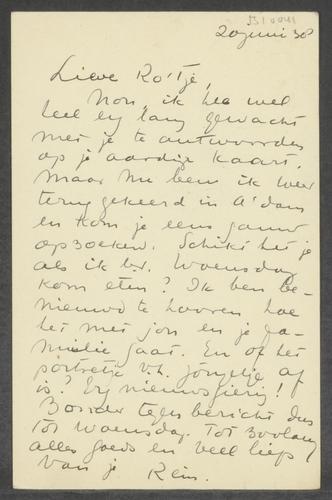 20 juni 38
Lieve Ro'tje,
Nou, ik heb wel
heel erg lang gewacht
met je te antwoorden
op je aardige kaart.
Maar nu ben ik weer
terug gekeerd in A'dam
en kom je eens gauw
opzoeken. Schikt het je
als ik b.v. Woensdag
kom eten? Ik ben be-
nieuwd te hooren hoe
het met jou en je fa-
milie gaat. En of het
portretje v.h. jongetje af
is? Erg nieuwsgierig!
Zonder tegenbericht dus
tot Woensdag. Tot zoolang
alles goeds en veel liefs
van je Rein.